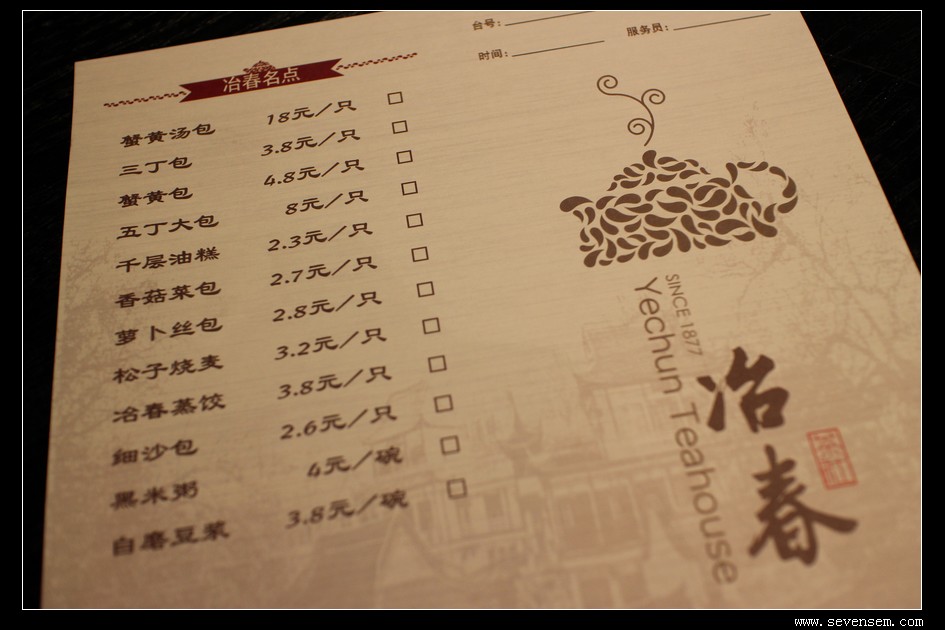 台号:
服务员:
时间:
冶春名点
蟹黄汤包 18元/只 □
三丁包 3.8元/只 □
蟹黄包 4.8元/只 □
五丁大包 8元/只 □
千层油糕 2.3元/只 □
香菇菜包 2.7元/只 □
萝卜丝包 2.8元/只 □
松子烧麦 3.2元/只 □
冶春蒸饺 3.8元/只 □
细沙包 2.6元/只 □
黑米粥 4元/碗 □
自磨豆浆 3.8元/碗 □
SINCE 1877
Yechun Teahouse
冶春
www.sevensem.com